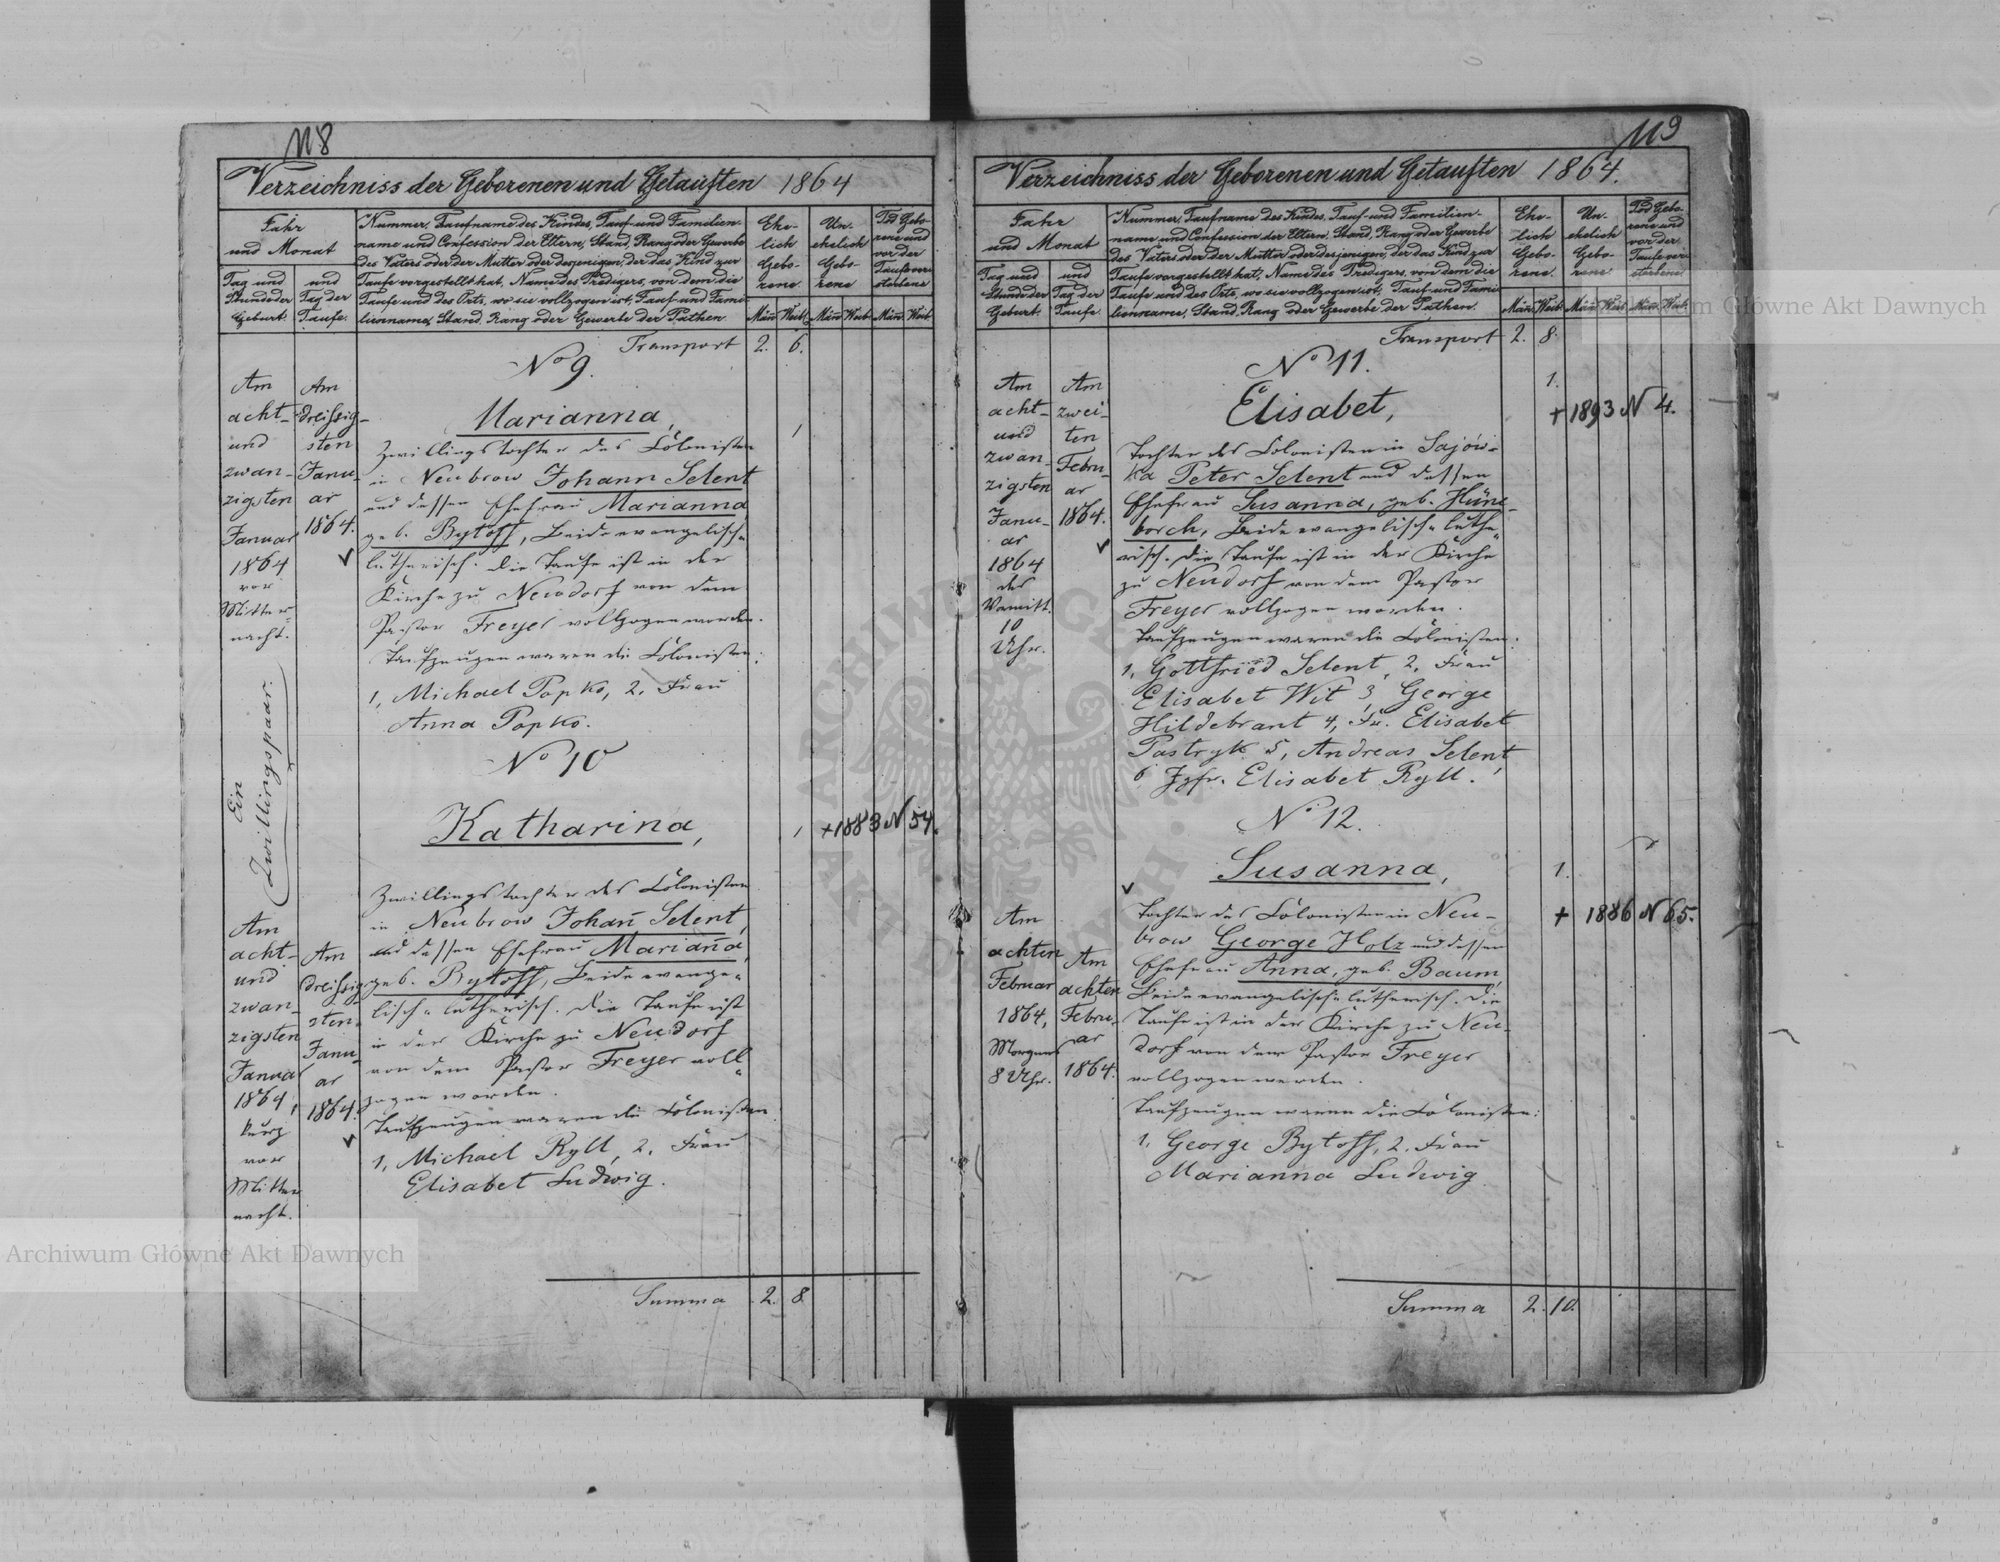 118
Verzeichniss der Geborenen und Getauften 1864
Jahr
und Monat
Tag und
Stunde der
Geburt.
und
Tag der
Taufe.
Nummer, Taufname des Kindes, Tauf- und Familien-
name und Confession der Eltern, Stand, Rang oder Gewerbe
des Vaters oder der Mutter oder desjenigen, der das Kind zur
Taufe vorgestellt hat, Name des Predigers, von dem die
Taufe und des Orts, wo sie vollzogen ist, Tauf- und Fami-
lienname, Stand, Rang oder Gewerbe der Pathen.
Ehe-
lich
Gebo-
rene.
Un-
ehelich
Gebo-
rene
Tod Gebo-
rene und
vor der
Taufe ver-
storbene
Män Weib Män Weib Män Weib
Transport 2. 6.
No 9.
Am
acht-
und
zwan-
zigsten
Januar
1864
vor
Mitter
nacht.
Am
dreissig-
sten
Janu-
ar
1864.
Marianna,
Zwillingstochter des Colonisten
in Neubrow Johann Selent
und dessen Ehefrau Marianna
geb. Bytoff, Beide evangelisch-
lutherisch. Die Taufe ist in der
Kirche zu Neudorf von dem
Pastor Freyer vollzogen worden.
Taufzeugen waren die Colonisten:
1, Michael Popko, 2. Frau
Anna Popko.
Ein
Zwillingspaar.
No 10
Katharina,
+ 1883 N 54.
Am
acht-
und
zwan-
zigsten
Januar
1864,
kurz
vor
Mitter
nacht.
Am
dreissig
sten
Janu-
ar
1864.
Zwillingstochter des Colonisten
in Neubrow Johan̄ Selent,
und dessen Ehefrau Marian̄a,
geb. Bytoff, Beide evange-
lisch-lutherisch. Die Taufe ist
in der Kirche zu Neudorf
von dem Pastor Freyer voll-
zogen worden.
Taufzeugen waren die Colonisten
1, Michael Ryll, 2. Frau
Elisabet Ludwig.
Summa 2. 8.
119
Verzeichniss der Geborenen und Getauften 1864.
Jahr
und Monat
Tag und
Stunde der
Geburt.
und
Tag der
Taufe.
Nummer, Taufname des Kindes, Tauf- und Familien-
name und Confession der Eltern, Stand, Rang oder Gewerbe
des Vaters oder der Mutter oder desjenigen, der das Kind zur
Taufe vorgestellt hat, Name des Predigers, von dem die
Taufe und des Orts, wo sie vollzogen ist, Tauf- und Fami-
lienname, Stand, Rang oder Gewerbe der Pathen.
Ehe-
lich
Gebo-
rene.
Un-
ehelich
Gebo-
rene
Tod Gebo-
rene und
vor der
Taufe ver-
storbene
Män Weib Män Weib Män Weib
Transport 2. 8.
No 11.
1.
Elisabet,
+ 1893 N 4.
Am
acht-
und
zwan-
zigsten
Janu-
ar
1864
des
Vormitt.
10
Uhr.
Am
zwei-
ten
Febru-
ar
1864.
Tochter des Colonisten in Sajów-
ka Peter Selent und dessen
Ehefrau Susanna, geb. Hüne-
borch, Beide evangelisch-luthe-
risch. Die Taufe ist in der Kirche
zu Neudorf von dem Pastor
Freyer vollzogen worden.
Taufzeugen waren die Colonisten:
1, Gottfried Selent, 2, Frau
Elisabet Wit 3, George
Hildebrant 4, Fr. Elisabet
Pastryk 5, Andreas Selent
6 Jgfr. Elisabet Ryll.
No 12.
Susanna,
1.
+ 1886 N 65.
Am
achten
Februar
1864,
Morgens
8 Uhr.
Am
achten
Febru-
ar
1864.
Tochter des Colonisten in Neu-
brow George Holz und dessen
Ehefrau Anna, geb. Baum,
Beide evangelisch-lutherisch. Die
Taufe ist in der Kirche zu Neu-
dorf von dem Pastor Freyer
vollzogen worden.
Taufzeugen waren die Colonisten:
1, George Bytoff, 2. Frau
Marianna Ludwig
Summa 2. 10.
Archiwum Główne Akt Dawnych
Archiwum Główne Akt Dawnych